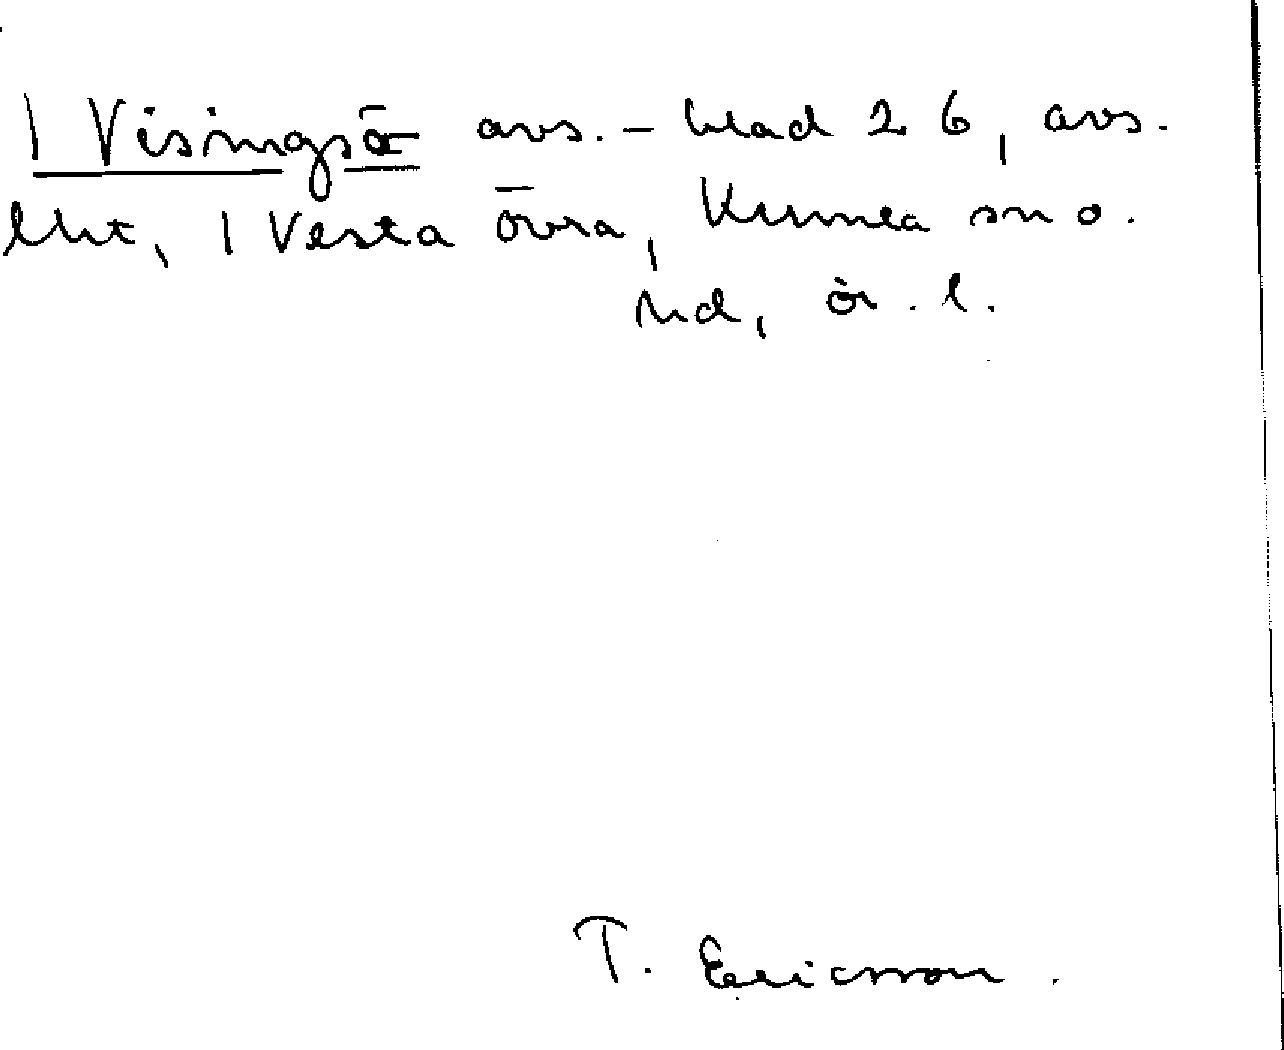 1 Visingsö avs. - blad 26, avs.
lht, 1 Vesta övra, Kumla sn o.
hd, ör. l.
T. Ericsson.